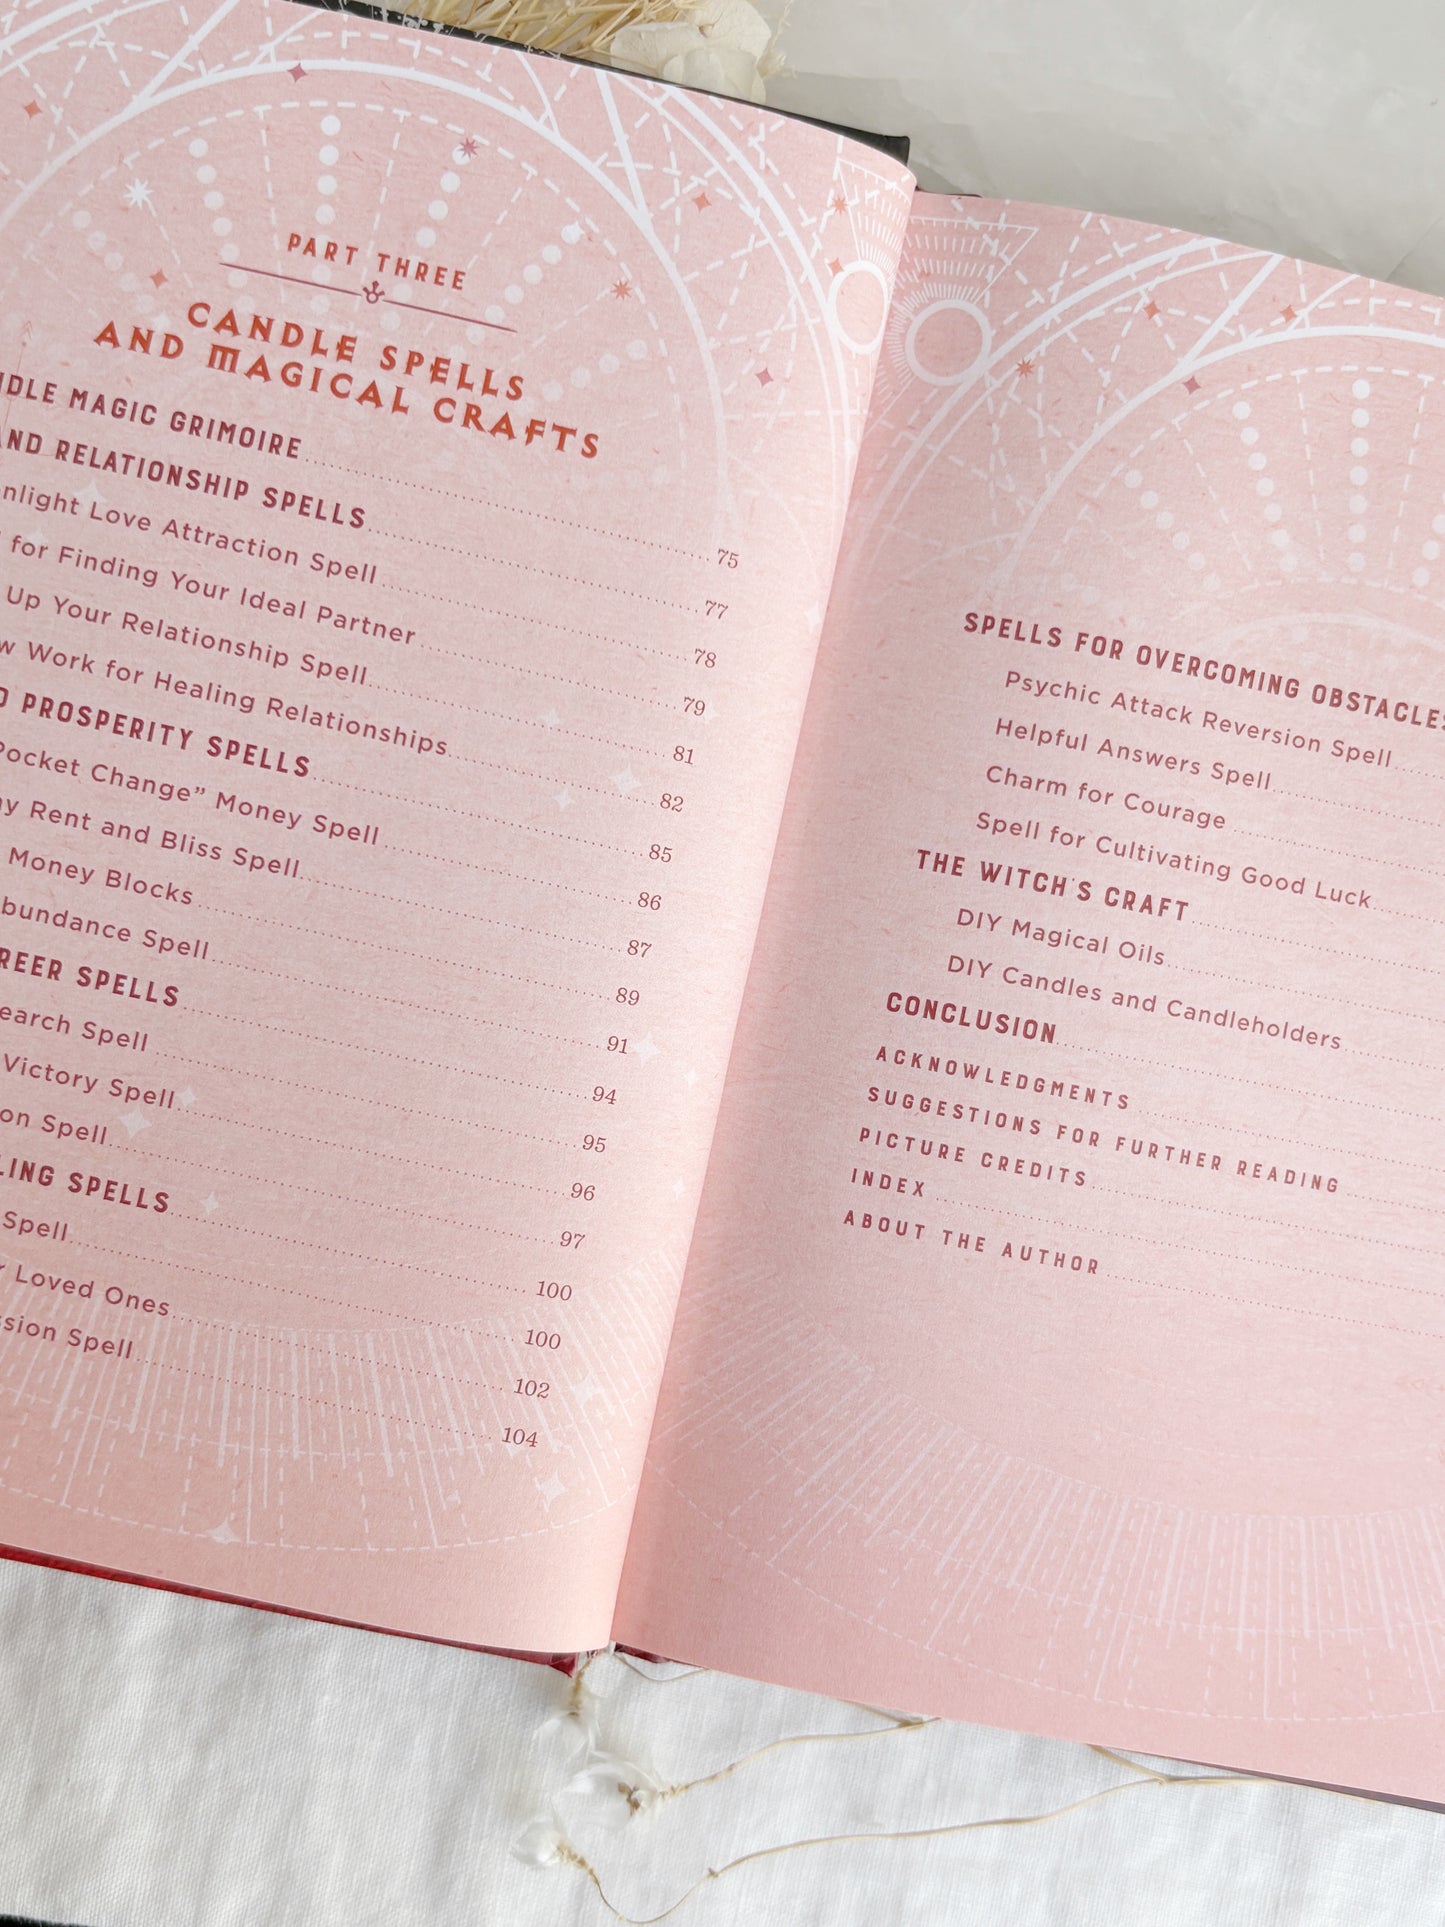 PART THREE
CANDLE SPELLS
AND MAGICAL CRAFTS
NDLE MAGIC GRIMOIRE 75
AND RELATIONSHIP SPELLS 77
nlight Love Attraction Spell 78
for Finding Your Ideal Partner 79
Up Your Relationship Spell 81
w Work for Healing Relationships 82
PROSPERITY SPELLS 85
Pocket Change” Money Spell 86
y Rent and Bliss Spell 87
Money Blocks 89
bundance Spell 91
REER SPELLS 94
earch Spell 95
Victory Spell 96
on Spell 97
LING SPELLS 100
Spell 100
Loved Ones 102
ssion Spell 104
SPELLS FOR OVERCOMING OBSTACLES
Psychic Attack Reversion Spell
Helpful Answers Spell
Charm for Courage
Spell for Cultivating Good Luck
THE WITCH'S CRAFT
DIY Magical Oils
DIY Candles and Candleholders
CONCLUSION
ACKNOWLEDGMENTS
SUGGESTIONS FOR FURTHER READING
PICTURE CREDITS
INDEX
ABOUT THE AUTHOR